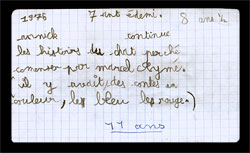 1976 7 ant édemi. 8 ans ½
annick continue
les histoires du chat perché
comencer par marcel Aymé.
(il y avait des contes en
couleur, les bleu les rouge.)
77 ans